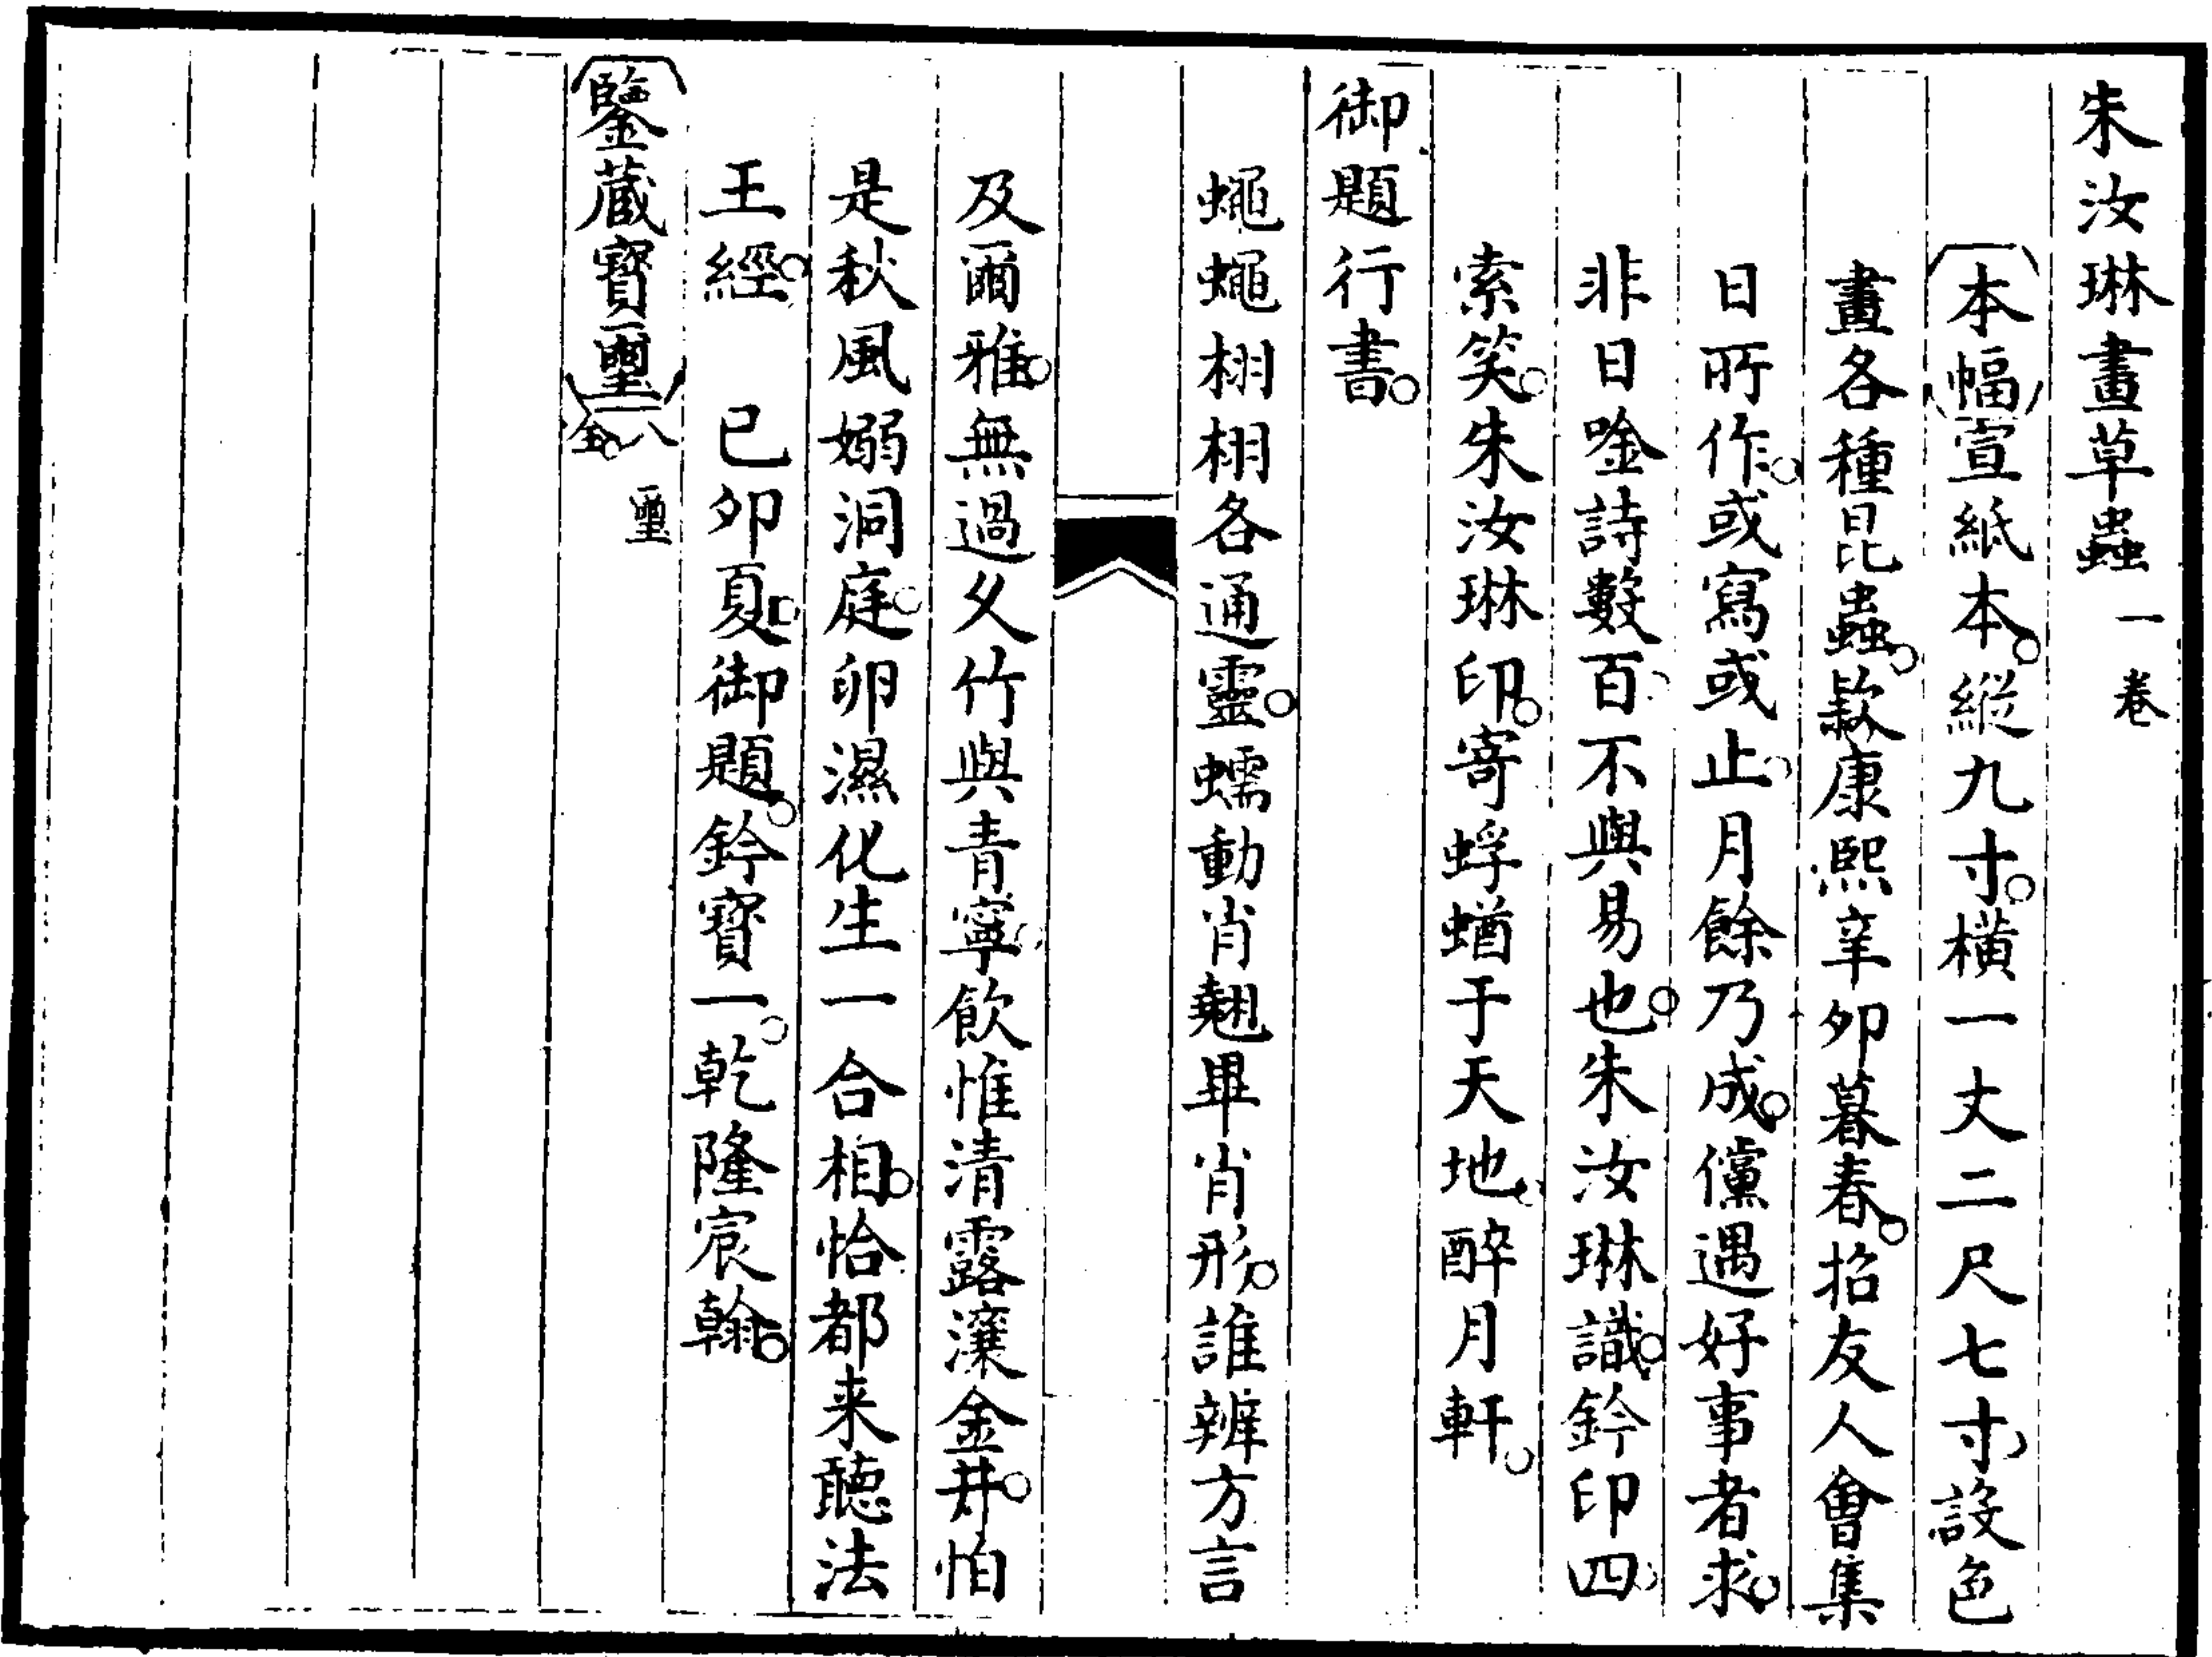 朱汝琳畫草蟲一卷
本幅宣紙本縱九寸橫一丈二尺七寸設色
畫各種昆蟲款康熙辛夘暮春招友人會集
日所作或寫或止月餘乃成儻遇好事者求
非日唫詩數百不與易也朱汝琳識鈐印四
索笑朱汝琳印寄蜉蝤于天地醉月軒
御題行書
蠅蠅栩栩各通靈蠕動肖翹畢肖形誰辨方言
及爾雅無過久竹與青寧飲惟清露瀼金井怕
是秋風嫋洞庭卵濕化生一合相恰都来聽法
王經 己夘夏御題鈐寶一乾隆宸翰
鑒藏寶璽八璽全